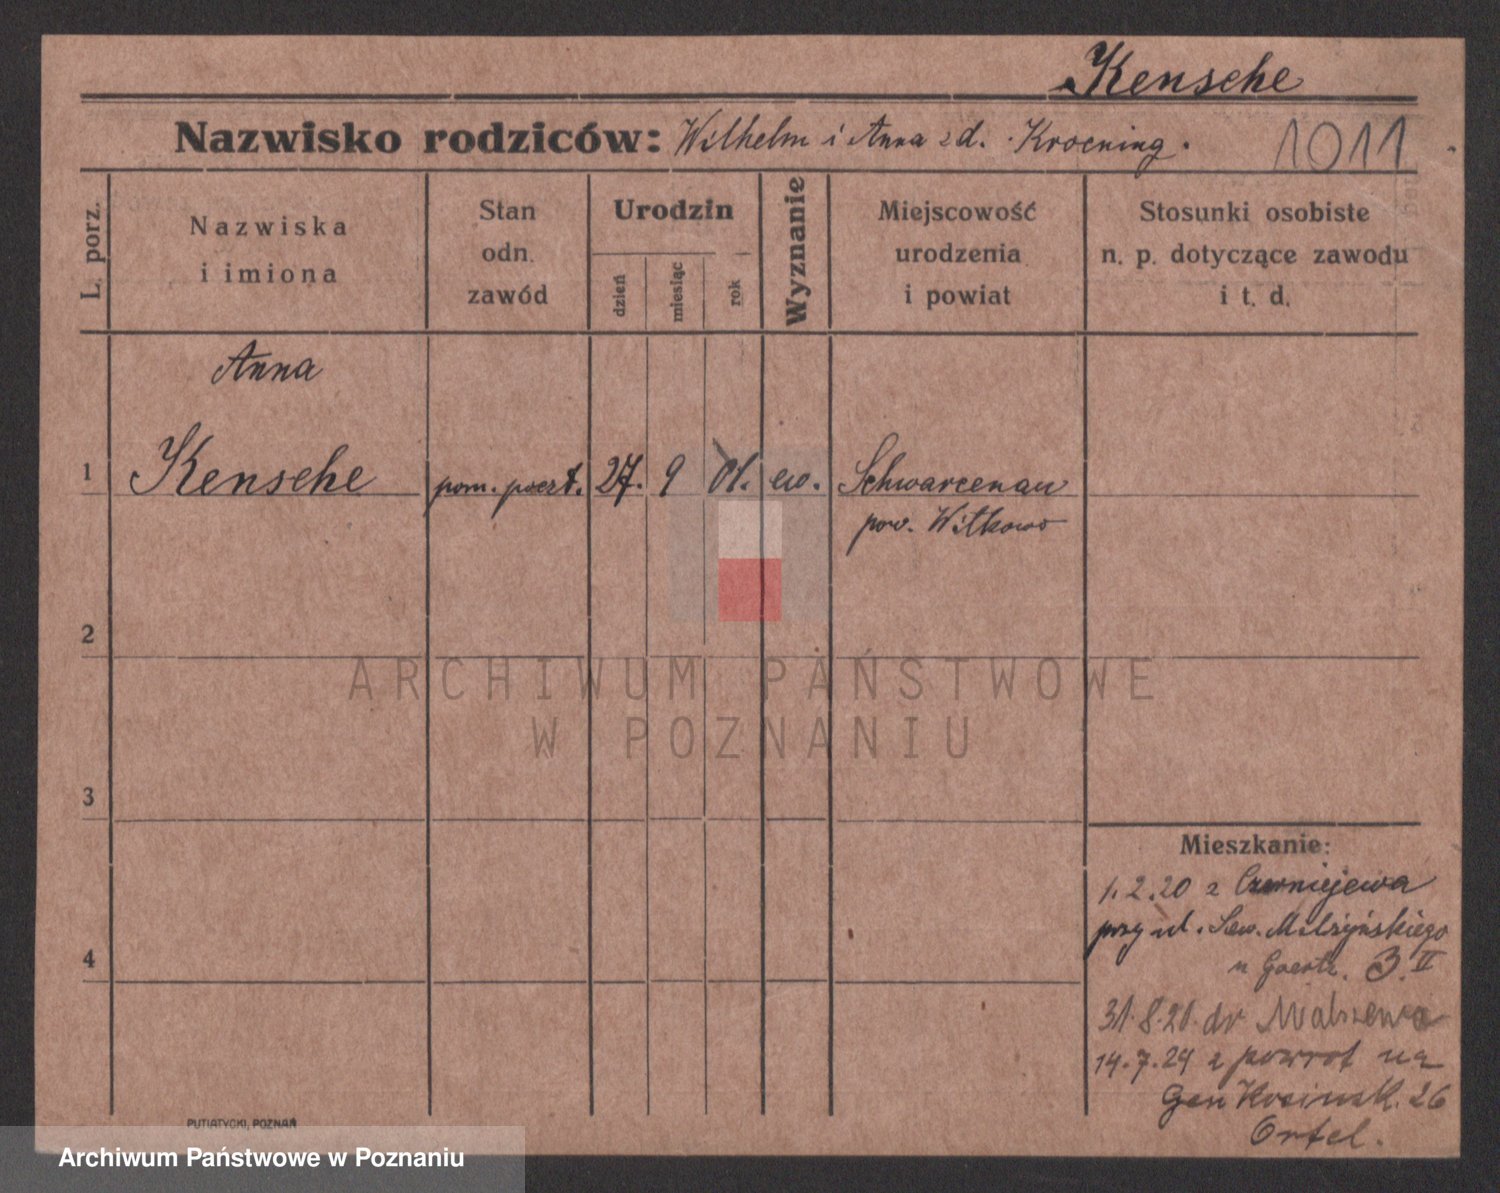 Kensche
Nazwisko rodziców: Wilhelm i Anna zd. Kroening. 1011
L. porz.
Nazwiska
i imiona
Stan
odn.
zawód
Urodzin
dzień
miesiąc
rok
Wyznanie
Miejscowość
urodzenia
i powiat
Stosunki osobiste
n. p. dotyczące zawodu
i t. d.
Anna
1 Kensche pom. poczt. 27. 9 01. ew. Schwarcenau
pow. Witkowo
2
3
4
Mieszkanie:
1.2.20 z Czerniejewa
przy ul. Sew. Mielżyńskiego
u 3.II
31.8.21. do
14.7.24 z powrot na
Gen 26
Ortel.
PUTIATYCKI, POZNAŃ
ARCHIWUM PAŃSTWOWE
W POZNANIU
Archiwum Państwowe w Poznaniu